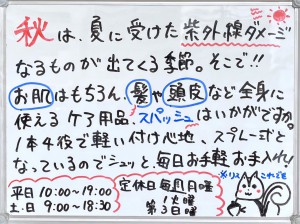 秋は、夏に受けた紫外線ダメージ
なるものが出てくる季節。そこで!!
お肌はもちろん、髪や頭皮など全身に
使えるケア用品、スパッシュはいかがですか。
1本4役で軽い付け心地、スプレー式と
なっているのでシュッと、毎日お手軽お手入れ!
平日 10:00~19:00
土・日 9:00~18:30
定休日 毎週月曜
1火曜
第3日曜
※リス これでも